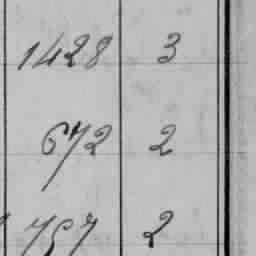 1428 3
672 2
757 2